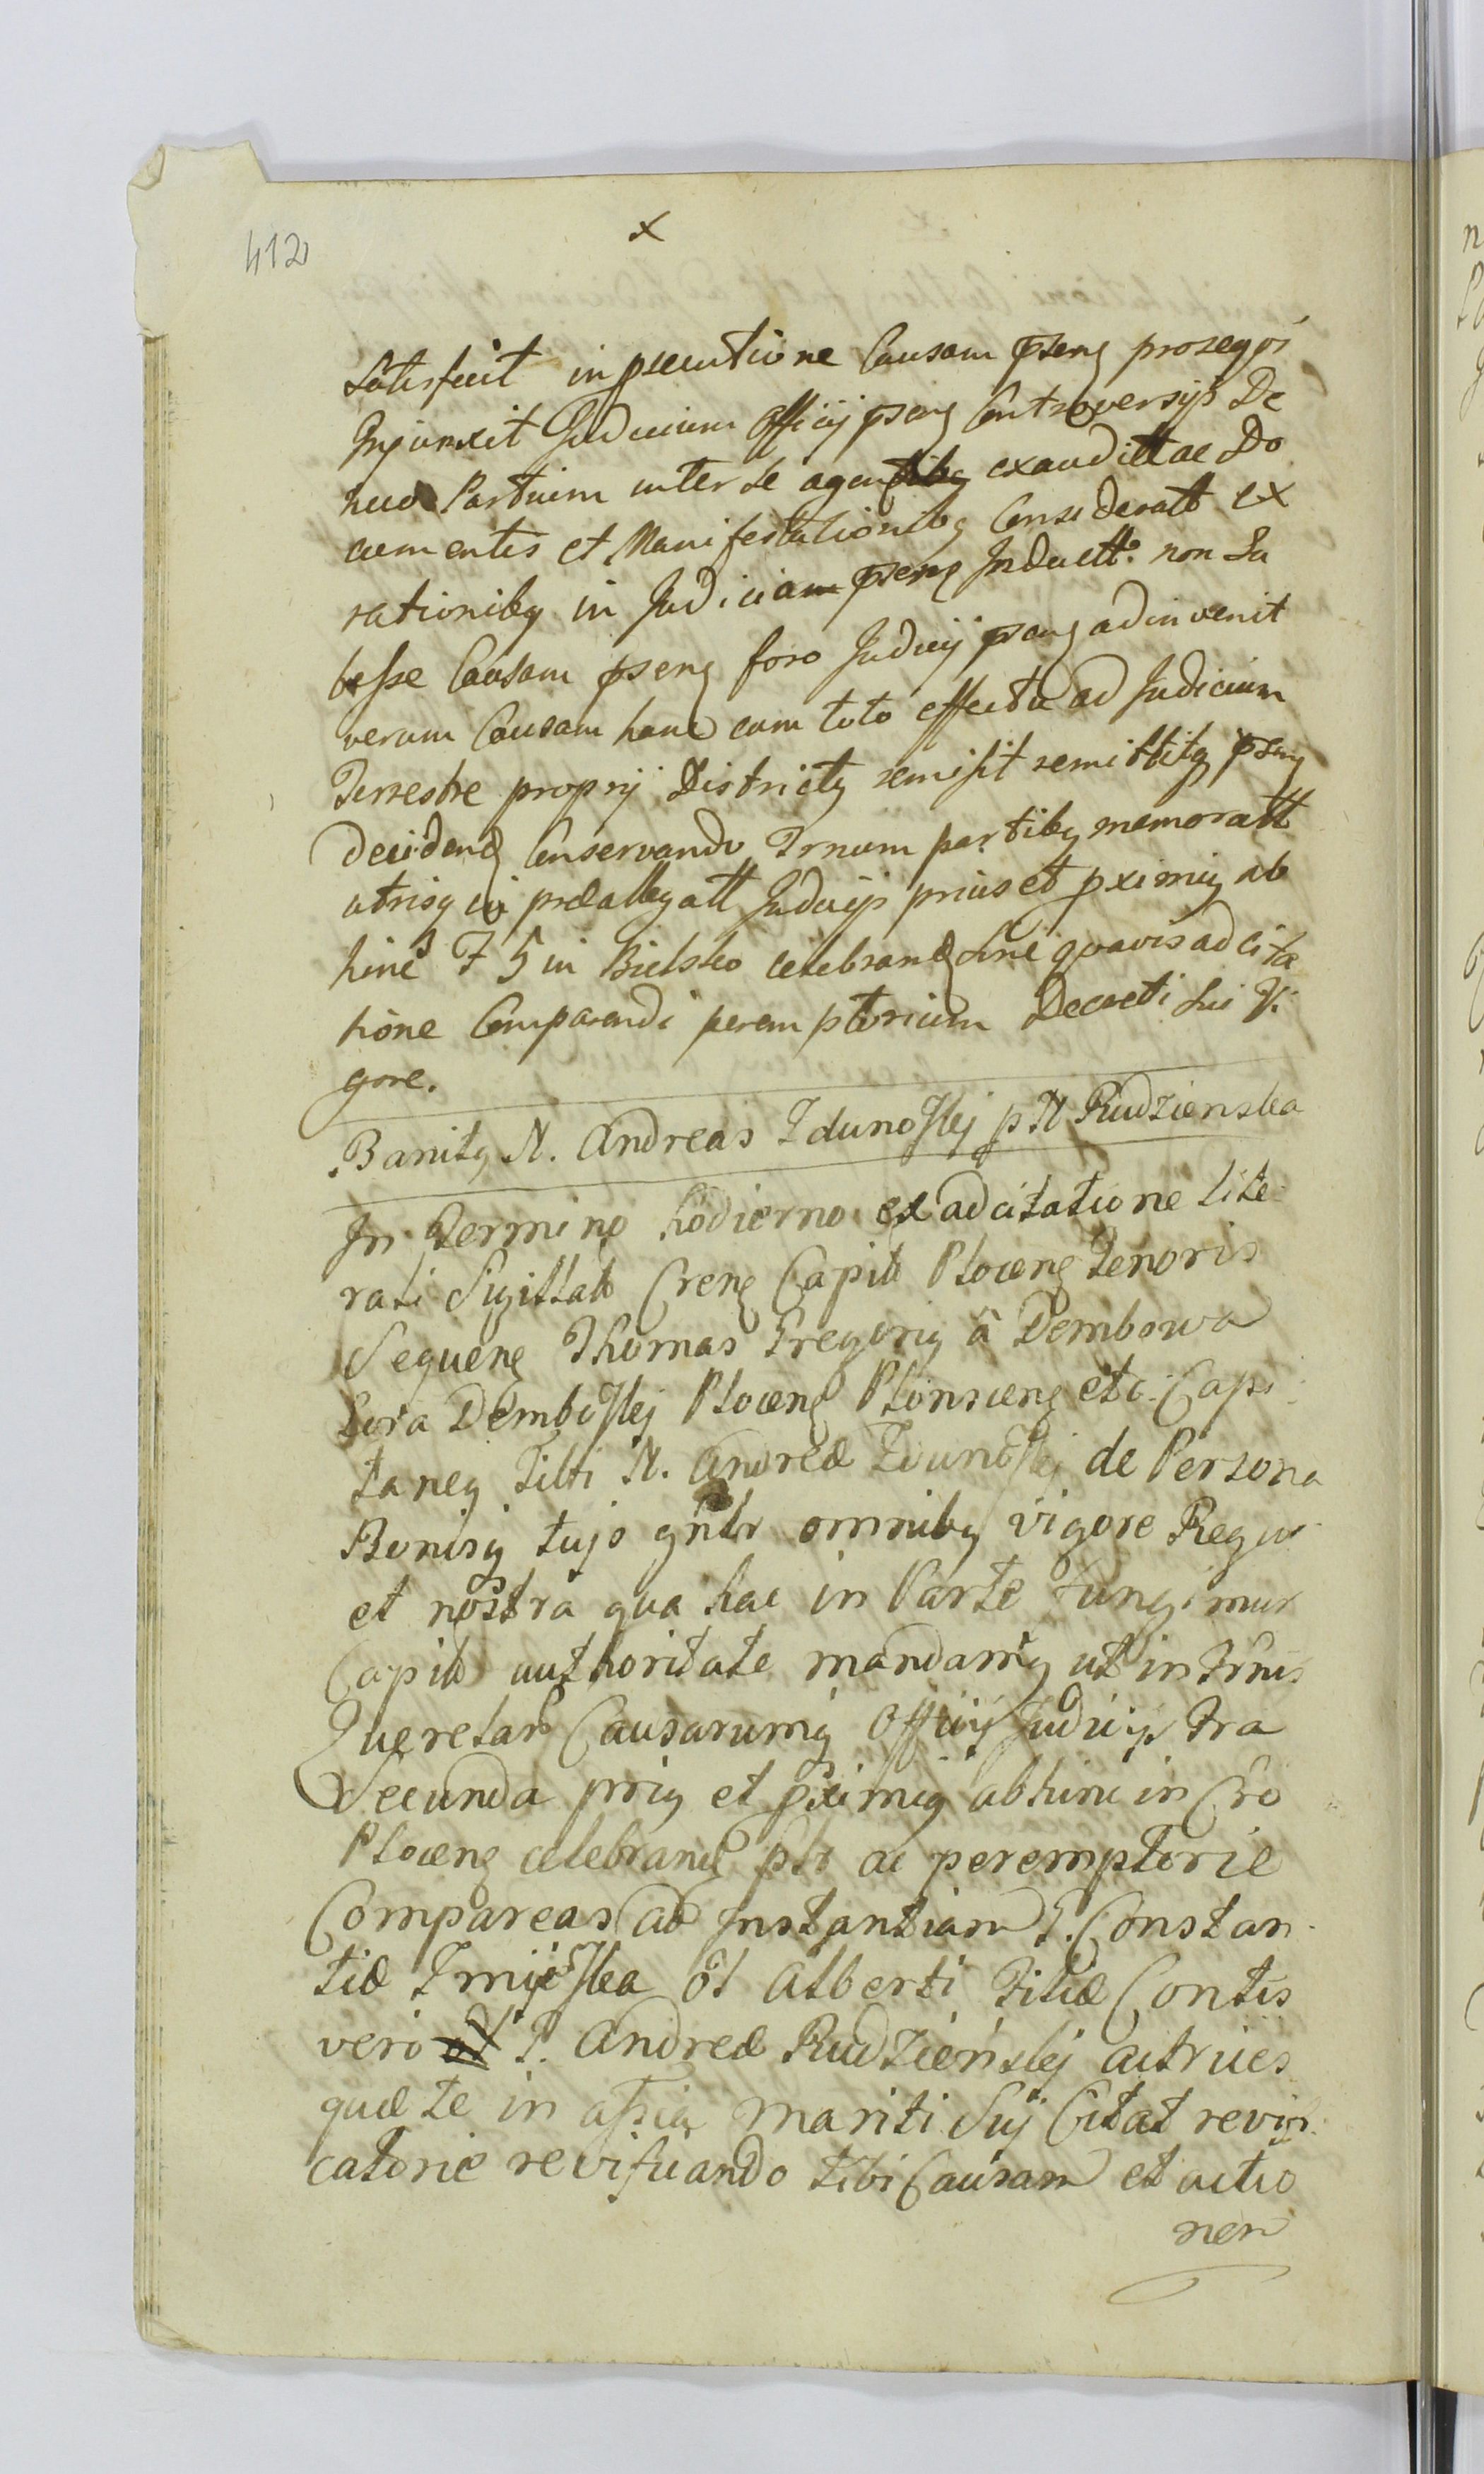 412
x
Satisfecit in psecutione Causam pseng prosequi
Injunxit Judicium Officij pseng Controversijs De
huio Partium inter se agentibg exauditt ac Do
cumentis et Manifestationibg Consideratt ex
rationibg in Judicium pseng Inductt: non Su
besse Causam pseng foro Judicij pseng adinvenit
verum Causam hanc cum toto effectu ad Judicium
Terrestre proprij Districtg remisit remittitg pseng
Decidendg Conservando Trnum partibg memoratt
utrisg in prællegatt Judicijs prius et pximig ab
hinc F 5 in Bielsko celebrandg Sine quavis adcita
tione Comparendi peremptorium Decreti Sui Vi
gore.
Banitg N. Andreas Zdunoskj p N Rudzienska
In Termino hodierno ex adcitatione lite
rali Sigillatt Creng Capitt Ploceng Tenoris
Sequeng Thomas Gregorig â Dembowa
Gora Demboskj Ploceng Plonsceng etc: Capi
taneg Tibi N. Andreæ Zdunoskj de Persona
Bonisg tujs gnlr omnibg vigore Regia
et nostra qua hac in Parte fungimur
Capitt authoritate mandamg ut in Trnis
Querelar Causarumg Officij Judicijs Fra
Secunda prig et pximig abhinc in Cro
Ploceng celebrandg pltr ac peremptorie
Compareas ad Instantiam G. Constan
tiæ Zmijoska ol Alberti Filiæ Contis
vero G. Andreæ Rudzienskj actrices
quæ te in assia mariti Sui Citat revifi
catorie revificando tibi Causam et actio
nem